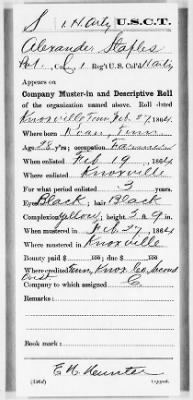 S 1 H. Arty U.S.C.T.
Alexander Staples
Pvt., Co. , 1 Reg't U.S. Col'd H. Arty
Appears on
Company Muster-in and Descriptive Roll
of the organization named above. Roll dated
Knoxville Tenn Feb 27, 1864.
Where born Roan, Tenn
Age 28 y'rs; occupation Farmer
When enlisted Feb 19, 1864
Where enlisted Knoxville
For what period enlisted 3 years.
Eyes Black; hair Black
Complexion Yellow; height 5 ft. 9 in.
When mustered in Feb. 27, 1864
Where mustered in Knoxville
Bounty paid $ 100; due $ 100
Where credited Tenn, Knox Co, Second
Dist
Company to which assigned C
Remarks:
Book mark:
E. H. Hunter
Copyist.